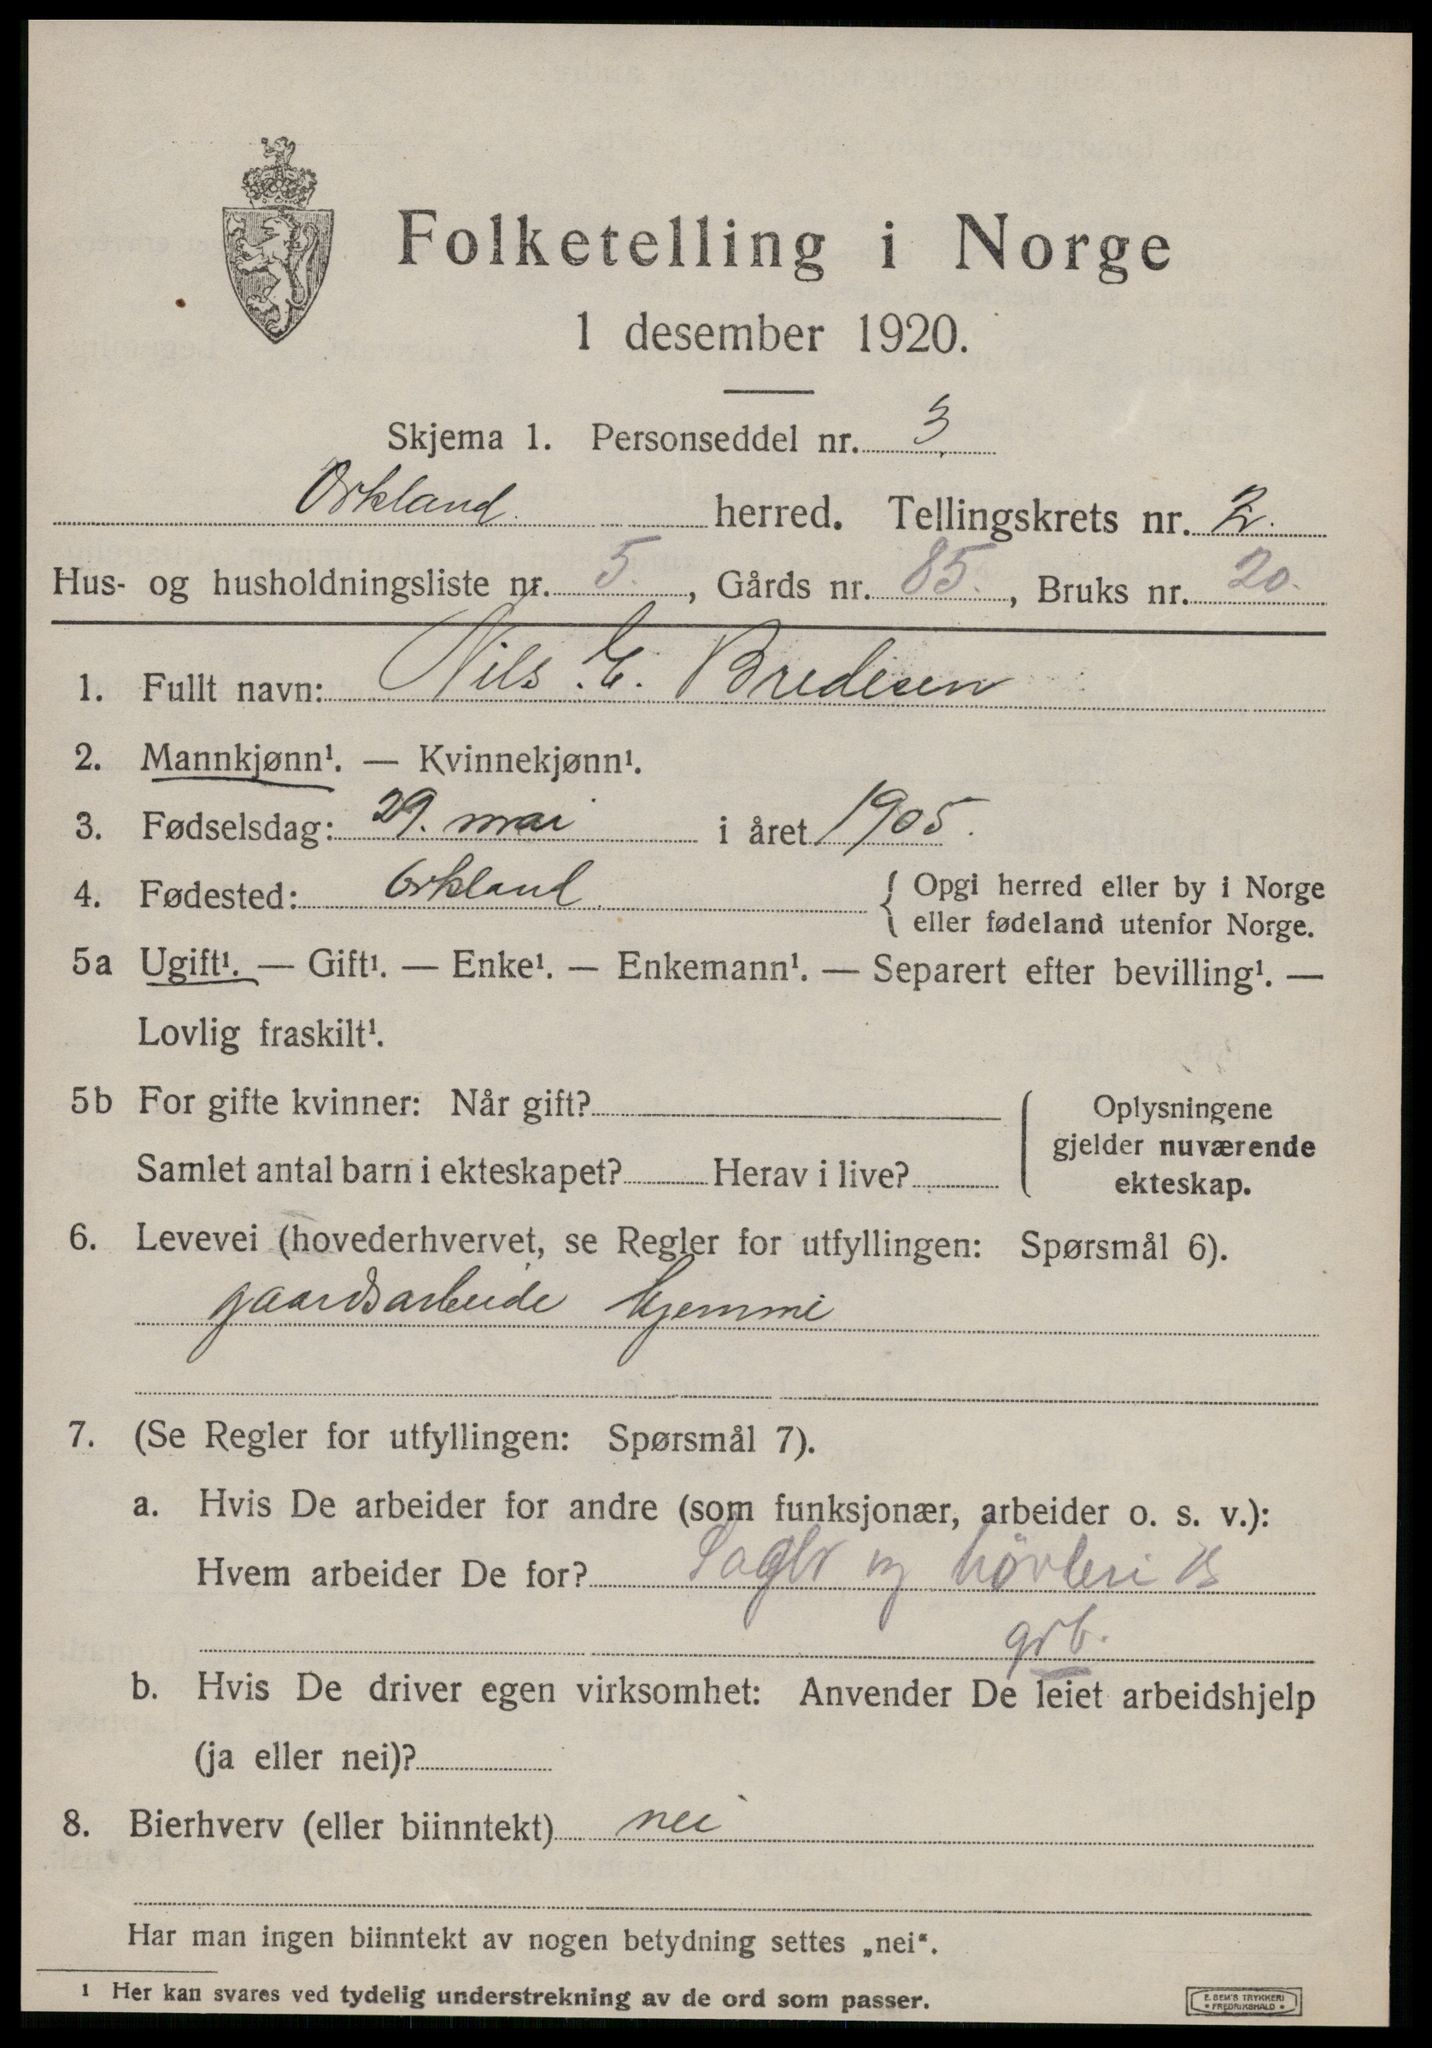 Folketelling i Norge
1 desember 1920.
Skjema 1. Personseddel nr. 3
Orkland herred. Tellingskrets nr. 2.
Hus- og husholdningsliste nr. 5., Gårds nr. 85., Bruks nr. 20.
1. Fullt navn: Nils. E. Bredesen
2. Mannkjønn¹. — Kvinnekjønn¹.
3. Fødselsdag: 29. mai i året 1905.
4. Fødested: Orkland { Opgi herred eller by i Norge
eller fødeland utenfor Norge.
5a Ugift¹. — Gift¹. — Enke¹. — Enkemann¹. — Separert efter bevilling¹. —
Lovlig fraskilt¹.
5b For gifte kvinner: Når gift? Oplysningene
gjelder nuværende
Samlet antal barn i ekteskapet? Herav i live? ekteskap.
6. Levevei (hovederhvervet, se Regler for utfyllingen: Spørsmål 6).
gaardsarbeide hjemme
7. (Se Regler for utfyllingen: Spørsmål 7).
a. Hvis De arbeider for andre (som funksjonær, arbeider o. s. v.):
Hvem arbeider De for? høvleri
grb.
b. Hvis De driver egen virksomhet: Anvender De leiet arbeidshjelp
(ja eller nei)?
8. Bierhverv (eller biinntekt) nei
Har man ingen biinntekt av nogen betydning settes „nei“.
¹ Her kan svares ved tydelig understrekning av de ord som passer.
E. SEM'S TRYKKERI
• FREDRIKSHALD •